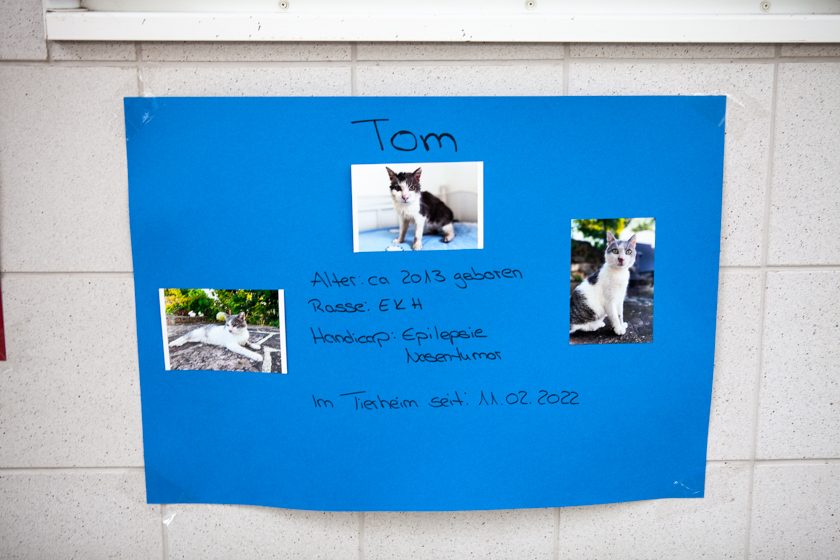 Tom
Alter: ca 2013 geboren
Rasse: EKH
Handicap: Epilepsie
Nasentumor
Im Tierheim seit: 11.02.2022